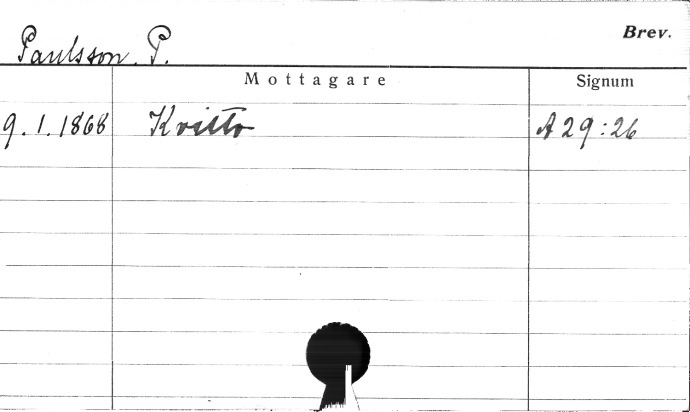 Paulsson. P.
Brev.
Mottagare
Signum
9.1.1868 Kvitto A 29:26